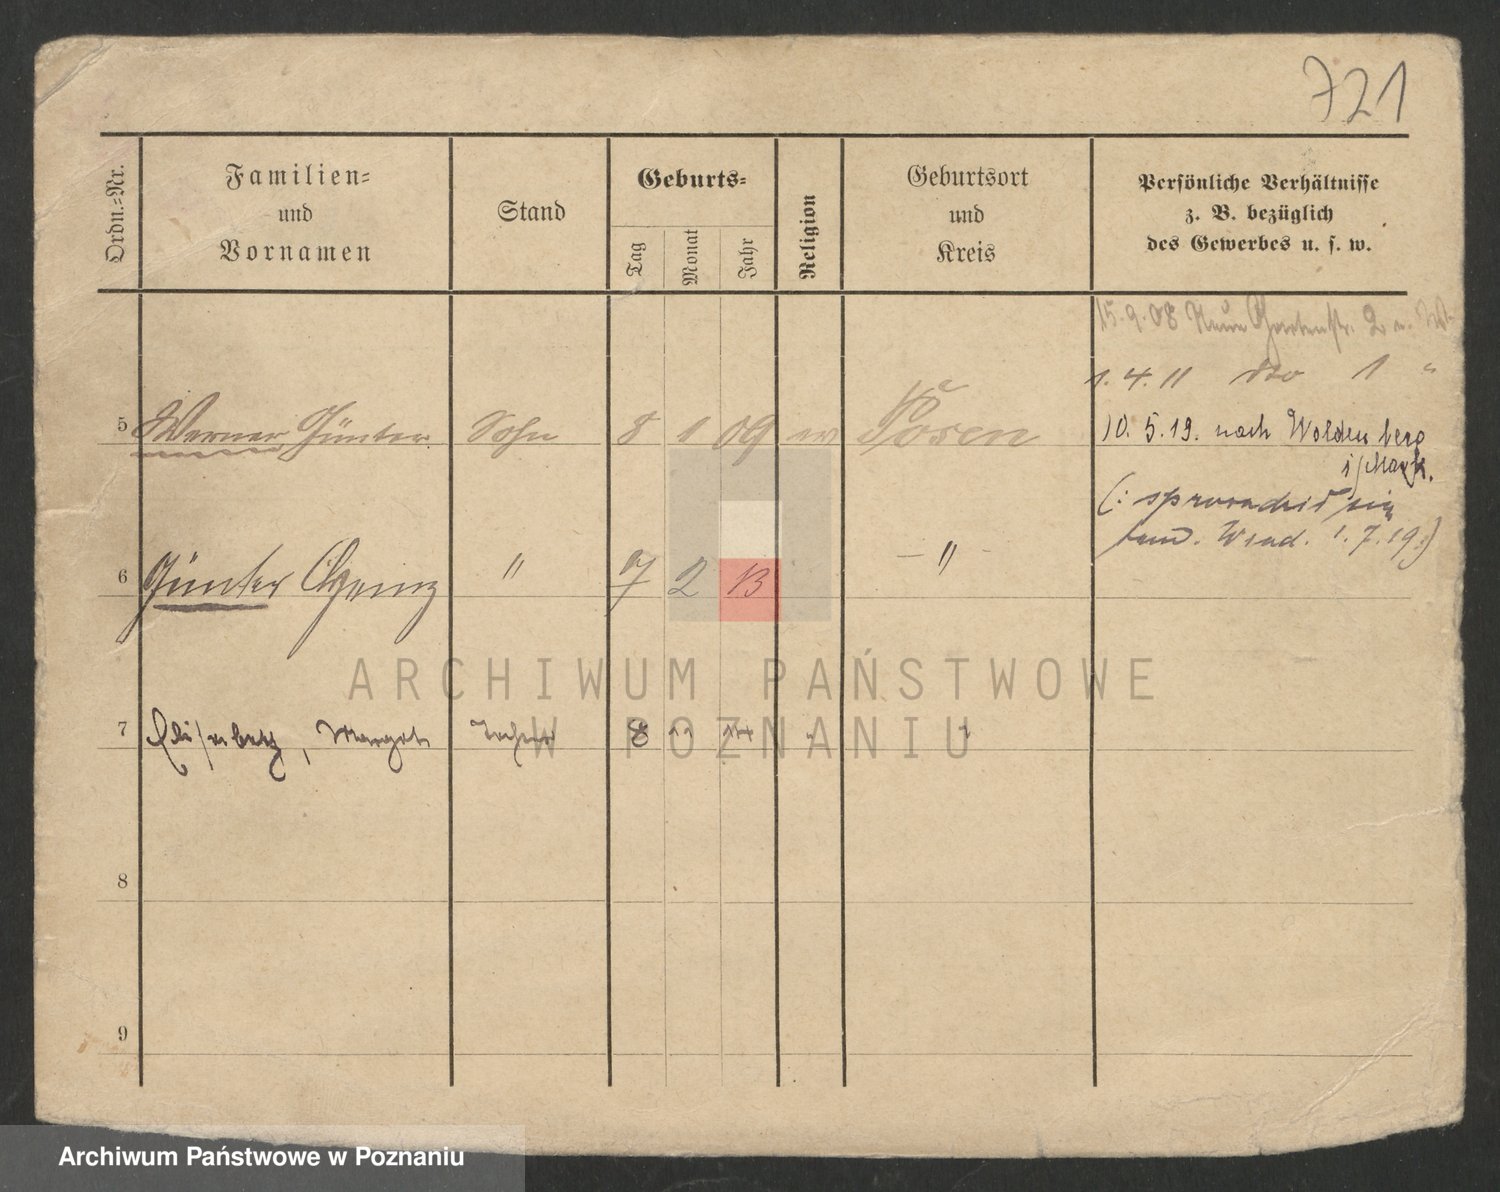 721
Ordn.-Nr.
Familien-
und
Vornamen
Stand
Geburts-
Tag
Monat
Jahr
Religion
Geburtsort
und
Kreis
Persönliche Verhältnisse
z. B. bezüglich
des Gewerbes u. s. w.
15.9.08 Neue Gartenstr. 2
1.4.11 dto 1 "
5 Werner Günter Sohn 8 1 09 Posen
10. 5.19. nach Woldenberg
i/Mark.
6 Günter Heinz " 7 2 13 "
1.7.19.)
7 Elisabeth, Margot Tochter 8 11 14 "
8
9
ARCHIWUM PAŃSTWOWE
W POZNANIU
Archiwum Państwowe w Poznaniu